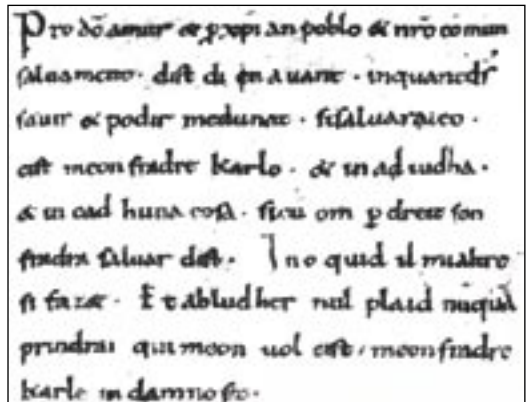 Pro dõ amur & p̱ xp̄ian poblo & nrõ cõmun
saluament. dist di en auant. inquantdſ
sauir & podir medunat. sisaluaraieo.
cist meon fradre Karlo. & in ad iudha.
& in cad huna cosa. sicũ om p̱ dreit son
fradra saluar dist. Ino quid il mialtre
si fazet. Et abludher nul plaid nũquã
prindrai qui meon uol cist. meon fradre
Karle in damno sit.